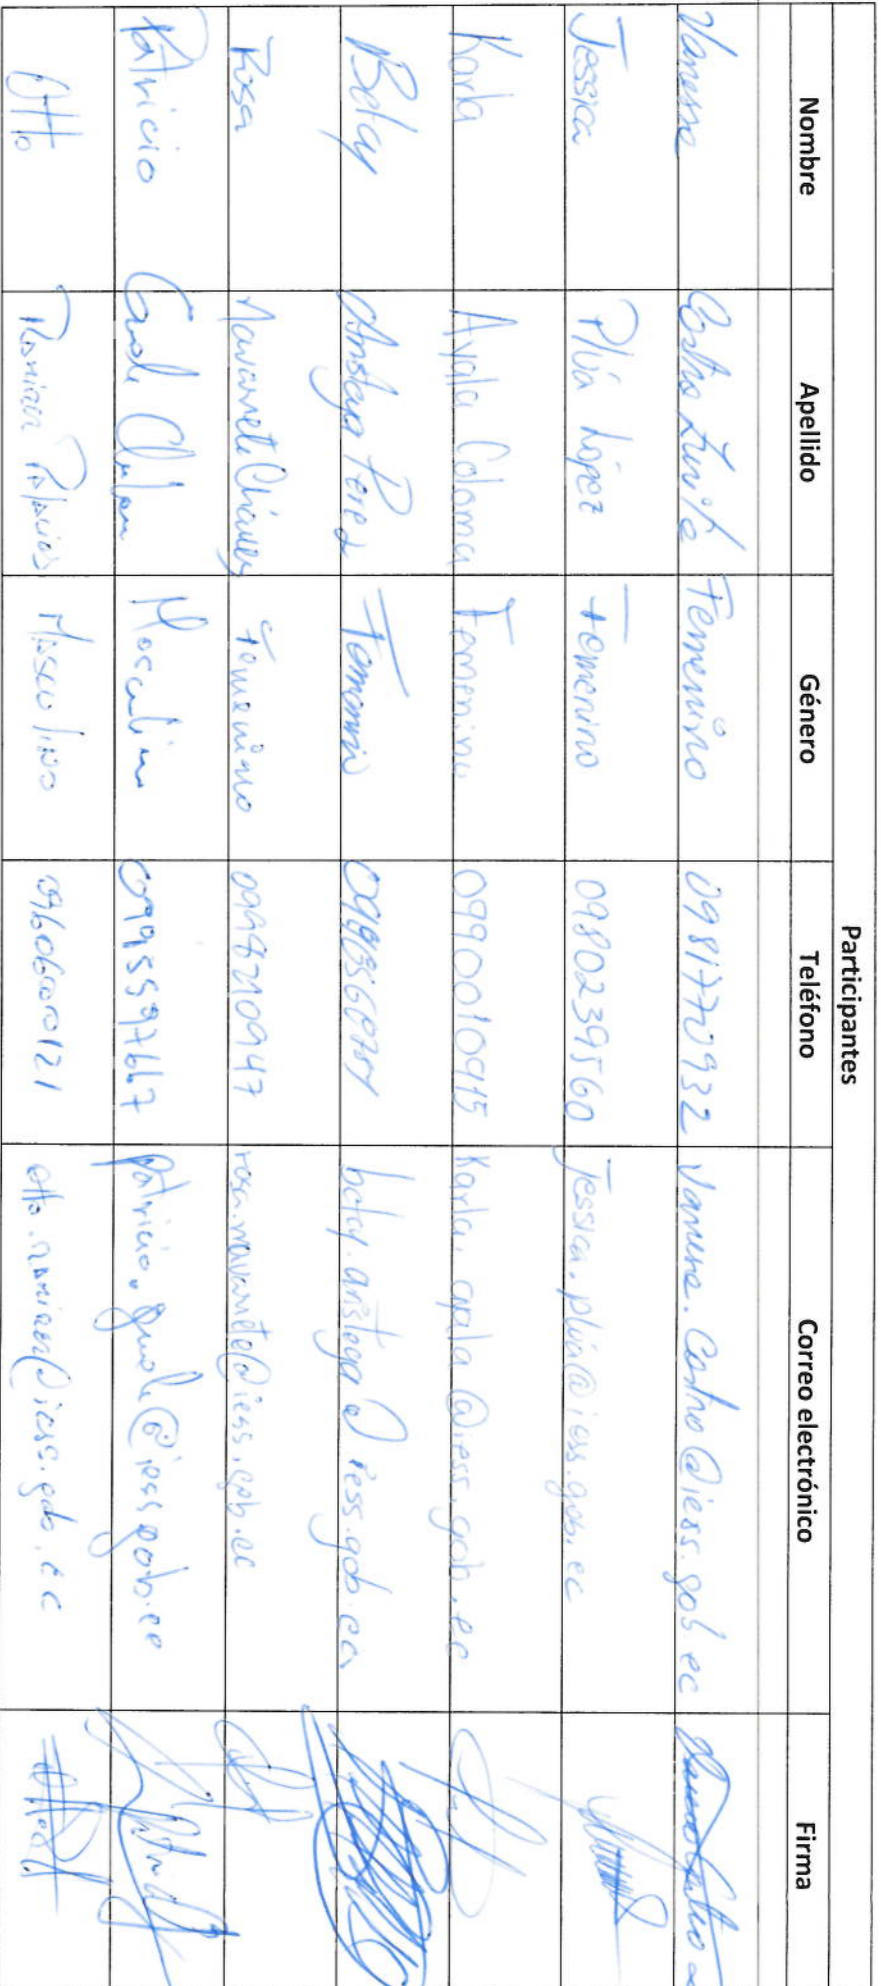 Participantes
Nombre Apellido Género Teléfono Correo electrónico Firma
Vanessa Castro Zurita Femenino 0981770932 vanessa.castro@iess.gob.ec
Jessica Plúa López Femenino 0980239560 jessica.plua@iess.gob.ec
Karla Ayala Coloma Femenino 0990010915 Karla.ayala@iess.gob.ec
Betsy Femenino betsy.aristega@iess.gob.ec
Rosa Navarrete Chávez Femenino 0998210947 rosa.navarrete@iess.gob.ec
Patricio Masculino 0995597667 patricio.guale@iess.gob.ec
Otto Ramirez Palacios Masculino otto.ramirez@iess.gob.ec